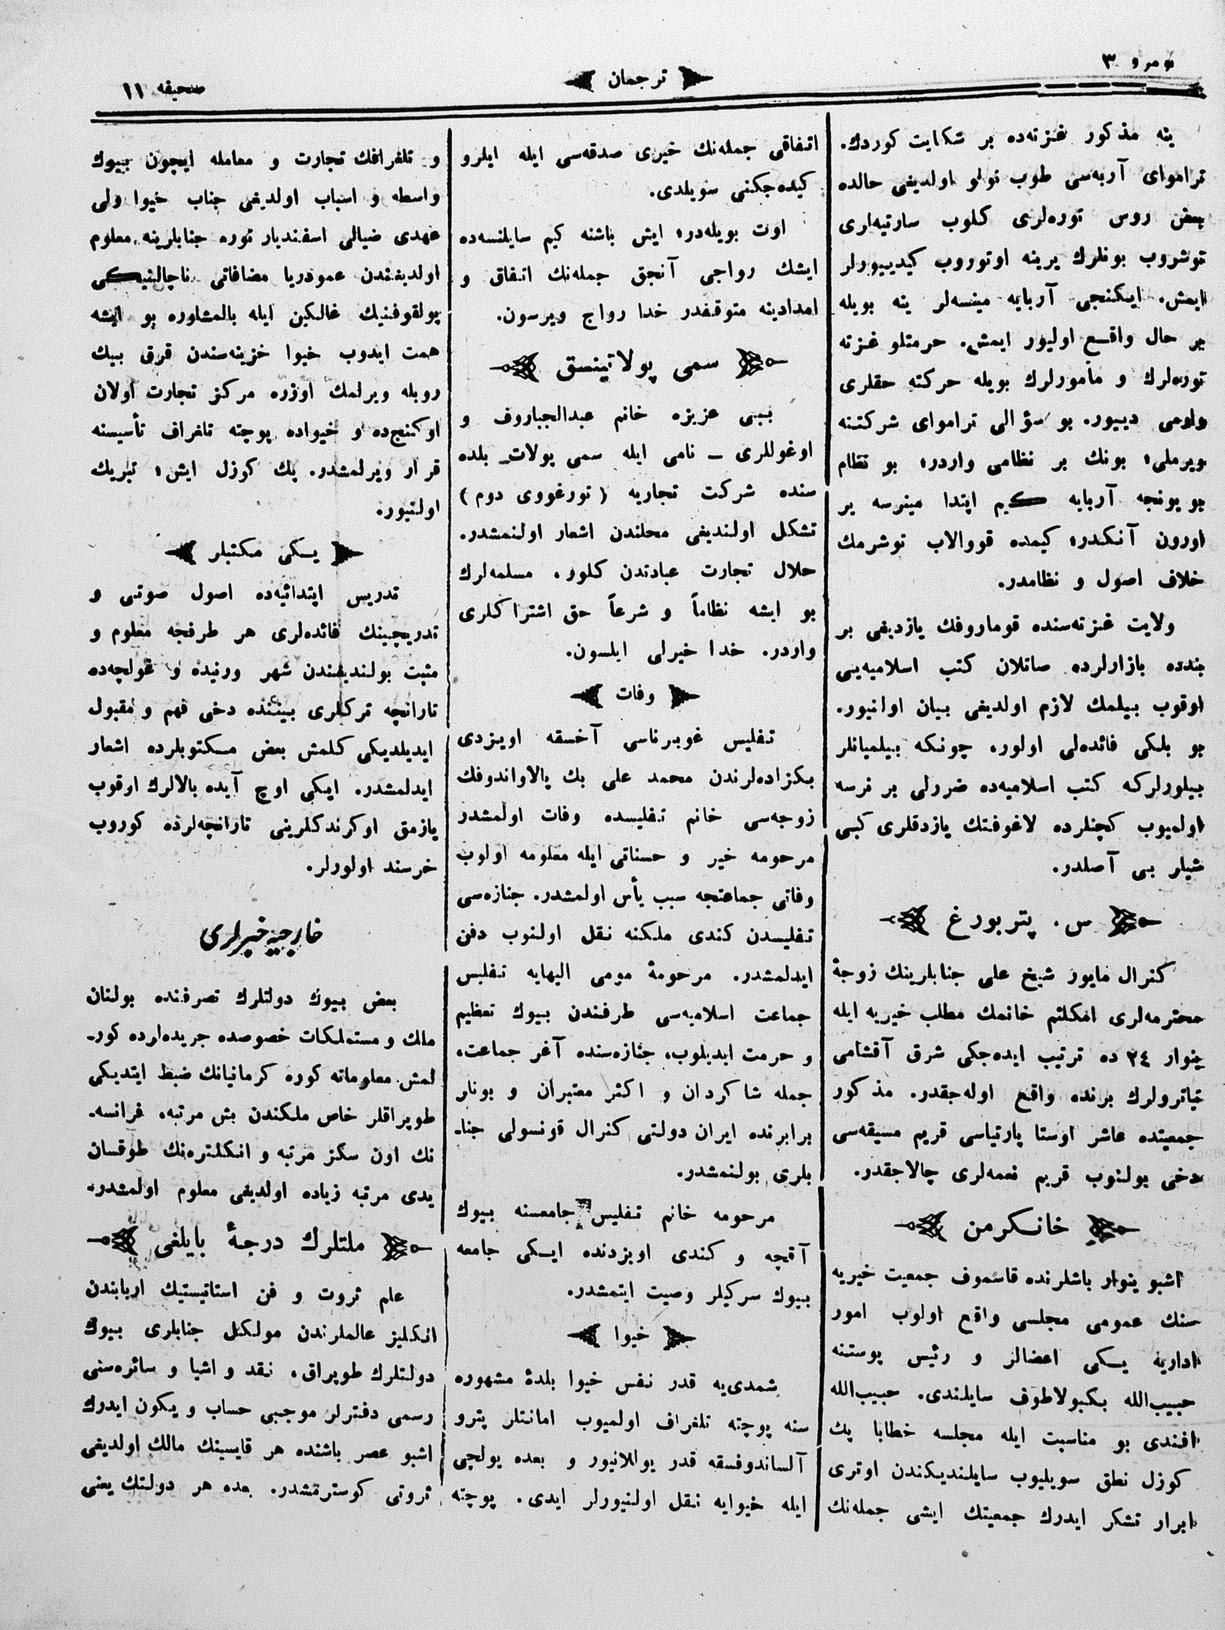 نومرو ٣
ترجمان
صحيفه ١١
ينه مذكور غزته‌ده بر شكايت كوردك.
تراموای آربه‌سی طوب تولو اولديغی حالده
بعض روس توره‌لری كلوب سارتيه‌لری
توشروب بونلرك يرينه اوتوروب كيديييورلر
ايمش. ايكنجی آربايه مينسه‌لر ينه بويله
بر حال واقع اوليور ايمش. حرمتلو غزته
توره‌لرك و مأمورلرك بويله حركته حقلری
وارمی دييور. بو سؤالی تراموای شركتنه
ويرملی؛ بونك بر نظامی واردر؛ بو نظام
بويونجه آربايه كيم ابتدا مينرسه ير
اورون آنكدر؛ كيمده قووالاب توشرمك
خلاف اصول و نظامدر.
ولايت غزته‌سنده قوماروفك يازديغی بر
بندده بازارلرده صاتلان كتب اسلاميه‌يی
اوقوب بيلمك لازم اولديغی بيان اولنيور.
بو بلكی فائده‌لی اولور. چونكه بيلميانلر
بيلورلركه كتب اسلاميه‌ده ضررلی بر نرسه
اولميوب كچنلرده لاغوفتك يازدقلری كبی
شيلر بی آصلدر.
س. پتربورغ
كنرال مايور شيخ علی جنابلرينك زوجهٔ
محترمه‌لری امكلثم خانمك مطلب خيريه ايله
ينوار ٢٤ ده ترتيب ايده‌جكی شرق آقشامی
تياترولرك برنده واقع اوله‌جقدر. مذكور
جمعيتده عاشر اوستا پارتياسی قريم مسيقه‌سی
دخی بولنوب قريم نغمه‌لری چالاجقدر.
خانكرمن
اشبو ينوار باشلرنده قاسموف جمعيت خيريه
سنك عمومی مجلسی واقع اولوب امور
اداريه يكی اعضالر و رئيس پوستنه
حبيب‌الله بكبولاطوف سايلندی. حبيب‌الله
افندی بو مناسبت ايله مجلسه خطابا پك
كوزل نطق سويليوب سايلنديكندن اوتری
ابرار تشكر ايدرك جمعيتك ايشی جمله‌نك
اتفاقی جمله‌نك خيری صدقه‌سی ايله ايلرو
كيده‌جكنی سويلدی.
اوت بويله‌در؛ ايش باشنه كيم سايلنسه‌ده
ايشك رواجی آنجق جمله‌نك اتفاق و
امدادينه متوقفدر خدا رواج ويرسون.
سمی پولاتينسق
بيبی عزيزه خانم عبدالجباروف و
اوغوللری ــ نامی ايله سمی بولات بلده
سنده شركت تجاريه (تورغووی دوم)
تشكل اولنديغی محلندن اشعار اولنمشدر.
حلال تجارت عبادتدن كلور. مسلمه‌لرك
بو ايشه نظاماً و شرعاً حق اشتراكلری
واردر. خدا خيرلی ايلسون.
وفات
تفليس غوبرناسی آخسقه اويزدی
بكزاده‌لرندن محمد علی بك پالاواندوفك
زوجه‌سی خانم تفليسده وفات اولمشدر
مرحومه خير و حسناتی ايله معلومه اولوب
وفاتی جماعتجه سبب يأس اولمشدر. جنازه‌سی
تفليسدن كندی ملكنه نقل اولنوب دفن
ايدلمشدر. مرحومهٔ مومی اليهايه تفليس
جماعت اسلاميه‌سی طرفندن بيوك تعظيم
و حرمت ايديلوب، جنازه‌سنده آغر جماعت،
جمله شاكردان و اكثر معتبران و بونلر
برابرنده ايران دولتی كنرال قونسولی جنا-
بلری بولنمشدر.
مرحومه خانم تفليس جامعسنه بيوك
آقچه و كندی اويزدنده ايكی جامعه
بيوك سركيلر وصيت ايتمشدر.
خيوا
شمدی‌يه قدر نفس خيوا بلدهٔ مشهوره
سنه پوچته تلغراف اولميوب امانتلر پترو
آلساندوفسقه قدر يوللانيور و بعده يولچی
ايله خيوايه نقل اولنيورلر ايدی. پوچته
و تلغرافك تجارت و معامله ايچون بيوك
واسطه و اسباب اولديغی جناب خيوا ولی
عهدی ضيالی اسفنديار توره جنابلرينه معلوم
اولديغندن عمودريا مضافاتی ناچالنيكی
پولقوفنيك غالكين ايله بالمشاوره بو ايشه
همت ايدوب خيوا خزينه‌سندن قرق بيك
روبله ويرلمك اوزره مركز تجارت اولان
اوكنج‌ده و خيواده پوچته تلغراف تأسيسنه
قرار ويرلمشدر. پك كوزل ايش؛ تبريك
اولنيور.
يكی مكتبلر
تدريس ابتدائيه‌ده اصول صوتی و
تدريجينك فائده‌لری هر طرفجه معلوم و
مثبت بولنديغندن شهر ورنيده و غولجه‌ده
تارانجه تركلری بيننده دخی فهم و مقبول
ايديلديكی كلمش بعض مكتوبلرده اشعار
ايدلمشدر. ايكی اوچ آيده بالالرك اوقوب
يازمق اوكرندكلرينی تارانچه‌لرده كوروب
خرسند اولورلر.
خارجيه خبرلری
بعض بيوك دولتلرك تصرفنده بولنان
ملك و مستملكات خصوصده جريده‌لرده كور-
لمش معلوماته كوره كرمانيانك ضبط ايتديكی
طوپراقلر خاص ملكندن بش مرتبه، فرانسه-
نك اون سكز مرتبه و انكلتره‌نك طوقسان
يدی مرتبه زياده اولديغی معلوم اولمشدر.
ملتلرك درجهٔ بايلغی
علم ثروت و فن استاتيستيك اربابندن
انكليز عالملرندن مولكل جنابلری بيوك
دولتلرك طوپراق، نقد و اشيا و سائره‌سنی
رسمی دفترلر موجبی حساب و يكون ايدرك
اشبو عصر باشنده هر قايسينك مالك اولديغی
ثروتی كوسترتمشدر. بعده هر دولتك يعنی